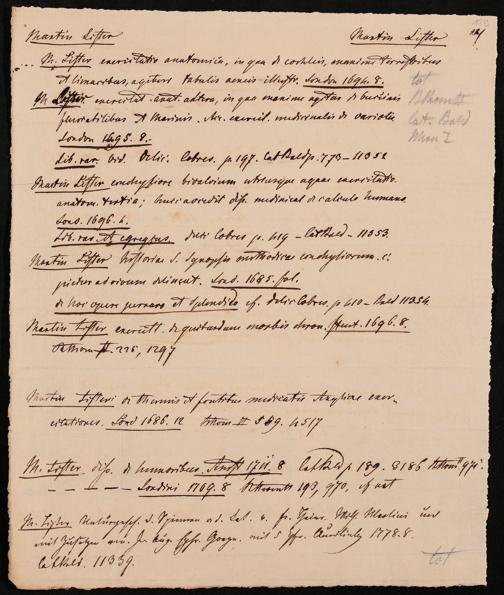 Martin Lister Martin Lister
M. Lister exercitatio anatomica, in qua de cochleis, maxime terrestribus
et limacibus, agitur. tabulis aeneis illustr. London 1694. 8.
M. Lister exercitat. anat. altera, in qua maxime agitur de buccinis
fluviatilibus et marinis. Acc. exercit. medicinalis de variolis
London 1695. 8.
Lib. rar. vid. Delic. Cobres. p. 197. Cat. Bald p. 773 – 11352
Martin Lister conchyliorum bivalvium utriusque aquae exercitatio
anatom. tertia; huic accedit diss. medicinal. de calculo humano
Lond. 1696. 4.
Lib. rar. et egregius. Delic Cobres p. 419 – Cat Bald – 11353.
Martin Lister historia s. Synopsis methodica conchyliorum. c.
pictura vivum delineat. Lond. 1685. fol.
de hoc opere perraro et splendido cf. Delic Cobres, p. 410 – Bald 11354
Martin Lister exercitt. de quibusdam morbis chron. 1696. 8.
II. 225, 1297
Martin Listeri de thermis et fontibus medicatis Angliae exer-
citationes. Lond 1686. 12 II 589. 4517
M. Lister diss. de humoribus. Amst 1711. 8 Cat Bald p 189. 3186
– – – – Londini 1709. 8 193, 970,
M. Lister Naturgesch. d. Spinnen a. d. Lat. v. Fr. Heinr. Wilh. Martini und
mit Zusätzen Goeze. mit 5 Quedlinb. 1778. 8.
Cat Bald. 11339.
tot
Cat. Bald
tot